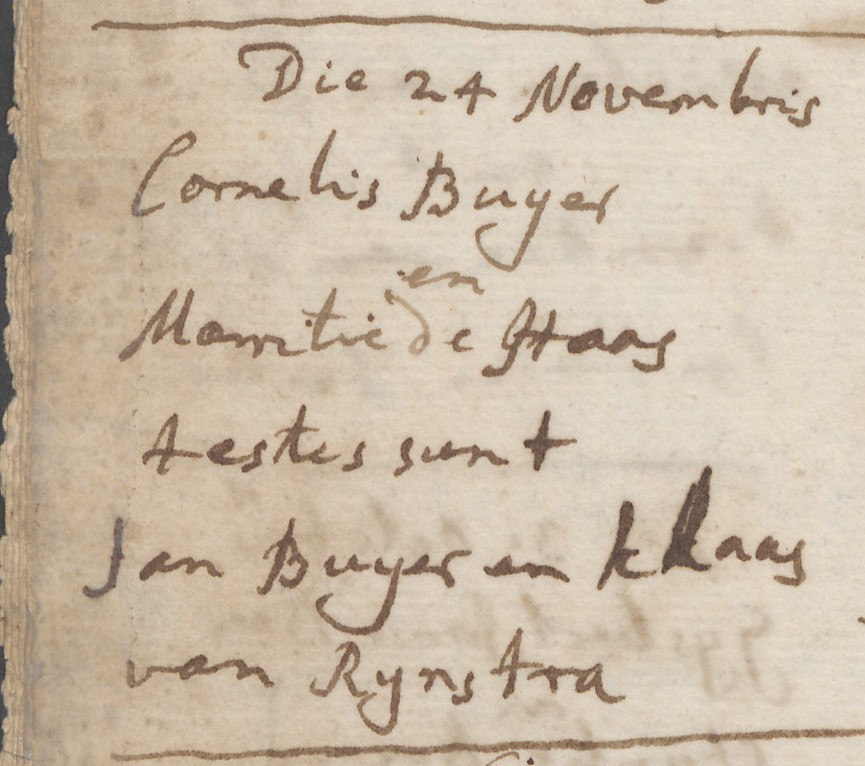 Die 24 Novembris
Cornelis Buyer
en
Marritie de Haas
testes sunt
Jan Buyer en klaas
van Rynstra